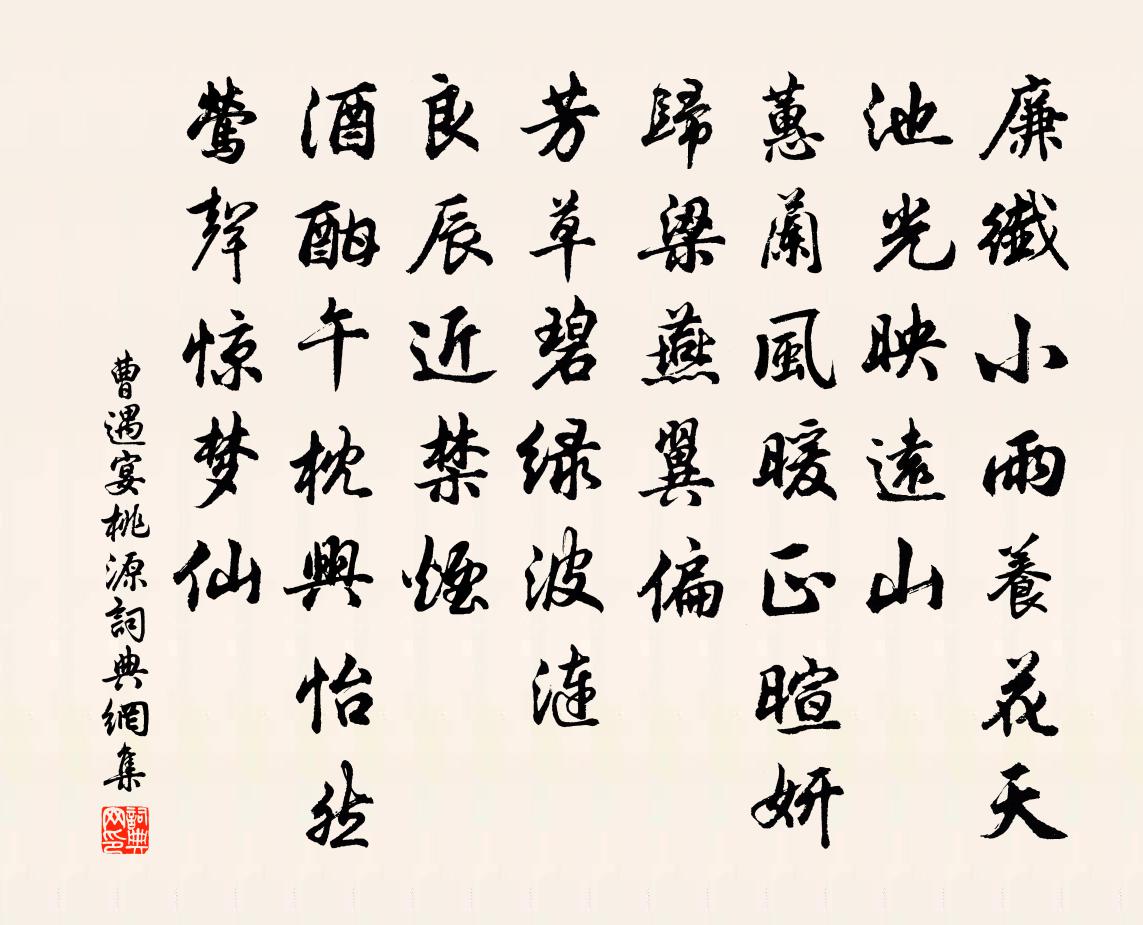 廉纖小雨養花天
池光映遠山
蕙蘭風暖正暄妍
歸梁燕翼偏
芳草碧绿波漣
良辰近禁煙
酒酣午枕興怡然
莺聲惊梦仙
曹遇宴桃源詞典網集
詞典网印